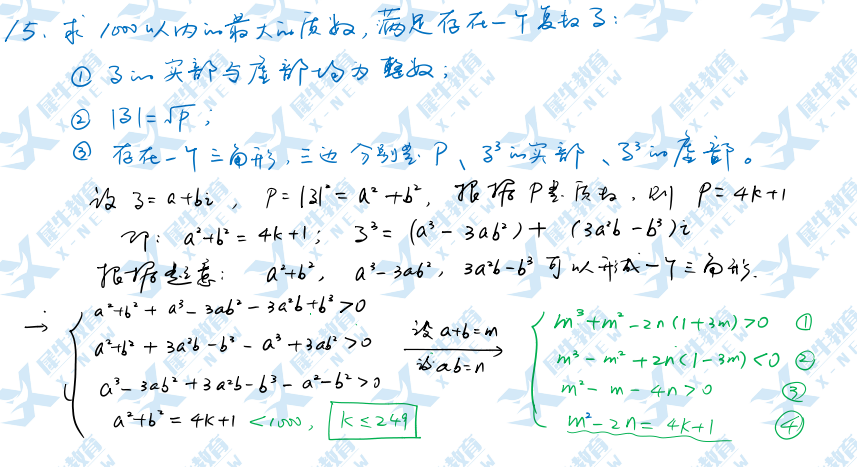 15. 求1000以内的最大的质数,满足存在一个复数z:
① z的实部与虚部均为整数;
② |z|=√p;
③ 存在一个三角形,三边分别是p、z³的实部、z³的虚部。
设z=a+bi, P=|z|²=a²+b², 根据P是质数,则 P=4k+1
即: a²+b²=4k+1; z³=(a³-3ab²)+(3a²b-b³)i
根据题意: a²+b², a³-3ab², 3a²b-b³可以形成一个三角形.
→ { a²+b²+a³-3ab²-3a²b+b³>0
a²+b²+3a²b-b³-a³+3ab²>0
a³-3ab²+3a²b-b³-a²-b²>0
a²+b²=4k+1 <1000, k≤249
设a+b=m
设ab=n
{ m³+m²-2n(1+3m)>0 ①
m³-m²+2n(1-3m)<0 ②
m²-m-4n>0 ③
m²-2n=4k+1 ④
犀牛教育
X-NEW